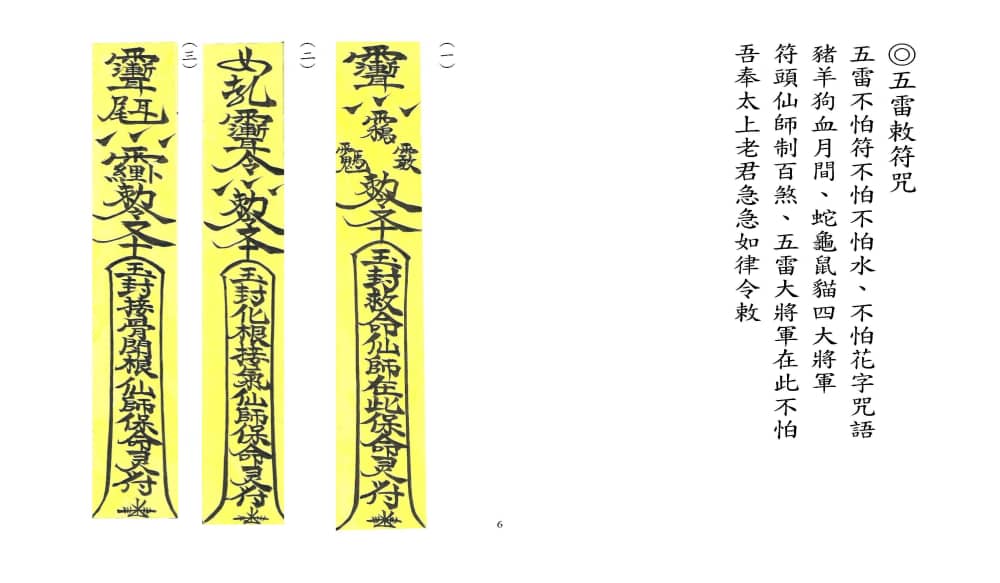 ◎五雷敕符咒
五雷不怕符不怕不怕水、不怕花字咒語
豬羊狗血月間、蛇龜鼠貓四大將軍
符頭仙師制百煞、五雷大將軍在此不怕
吾奉太上老君急急如律令敕
(一)
勅令
玉封救命仙師在此保命灵符
(二)
勅令
玉封化根接氣仙師保命灵符
(三)
勅令
玉封接骨開根仙師保命灵符
6